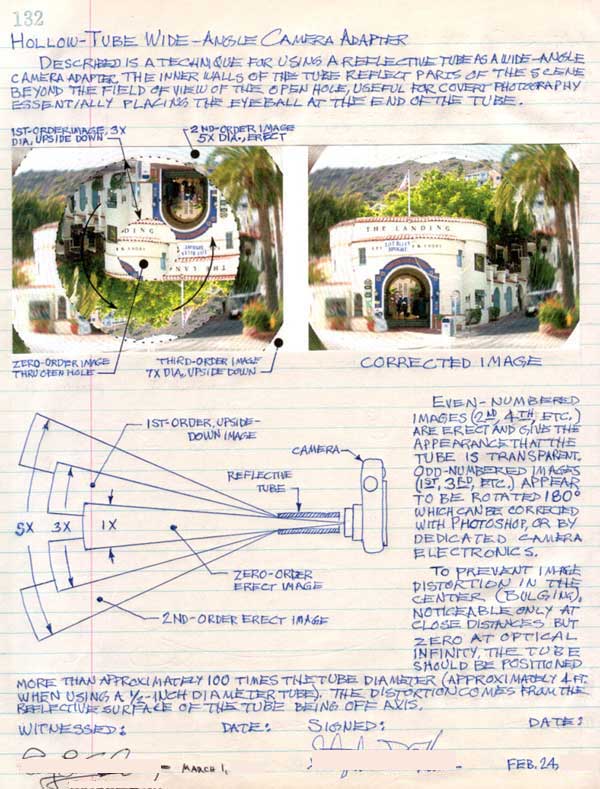 132
HOLLOW-TUBE WIDE-ANGLE CAMERA ADAPTER
DESCRIBED IS A TECHNIQUE FOR USING A REFLECTIVE TUBE AS A WIDE-ANGLE
CAMERA ADAPTER. THE INNER WALLS OF THE TUBE REFLECT PARTS OF THE SCENE
BEYOND THE FIELD OF VIEW OF THE OPEN HOLE, USEFUL FOR COVERT PHOTOGRAPHY
ESSENTIALLY PLACING THE EYEBALL AT THE END OF THE TUBE.
1ST-ORDER IMAGE, 3X
DIA, UPSIDE DOWN
2ND-ORDER IMAGE
5X DIA., ERECT
DING
THE LAN
THE LANDING
ZERO-ORDER IMAGE
THRU OPEN HOLE
THIRD-ORDER IMAGE
7X DIA, UPSIDE DOWN
CORRECTED IMAGE
1ST-ORDER, UPSIDE-
DOWN IMAGE
CAMERA
REFLECTIVE
TUBE
5X 3X 1X
ZERO-ORDER
ERECT IMAGE
2ND-ORDER ERECT IMAGE
EVEN-NUMBERED
IMAGES (2ND, 4TH, ETC.)
ARE ERECT AND GIVE THE
APPEARANCE THAT THE
TUBE IS TRANSPARENT.
ODD-NUMBERED IMAGES
(1ST, 3RD, ETC.) APPEAR
TO BE ROTATED 180°
WHICH CAN BE CORRECTED
WITH PHOTOSHOP, OR BY
DEDICATED CAMERA
ELECTRONICS.
TO PREVENT IMAGE
DISTORTION IN THE
CENTER (BULGING),
NOTICEABLE ONLY AT
CLOSE DISTANCES BUT
ZERO AT OPTICAL
INFINITY, THE TUBE
SHOULD BE POSITIONED
MORE THAN APPROXIMATELY 100 TIMES THE TUBE DIAMETER (APPROXIMATELY 4 FT.
WHEN USING A ½-INCH DIAMETER TUBE). THE DISTORTION COMES FROM THE
REFLECTIVE SURFACE OF THE TUBE BEING OFF AXIS.
WITNESSED: DATE: SIGNED: DATE:
MARCH 1, FEB. 24,